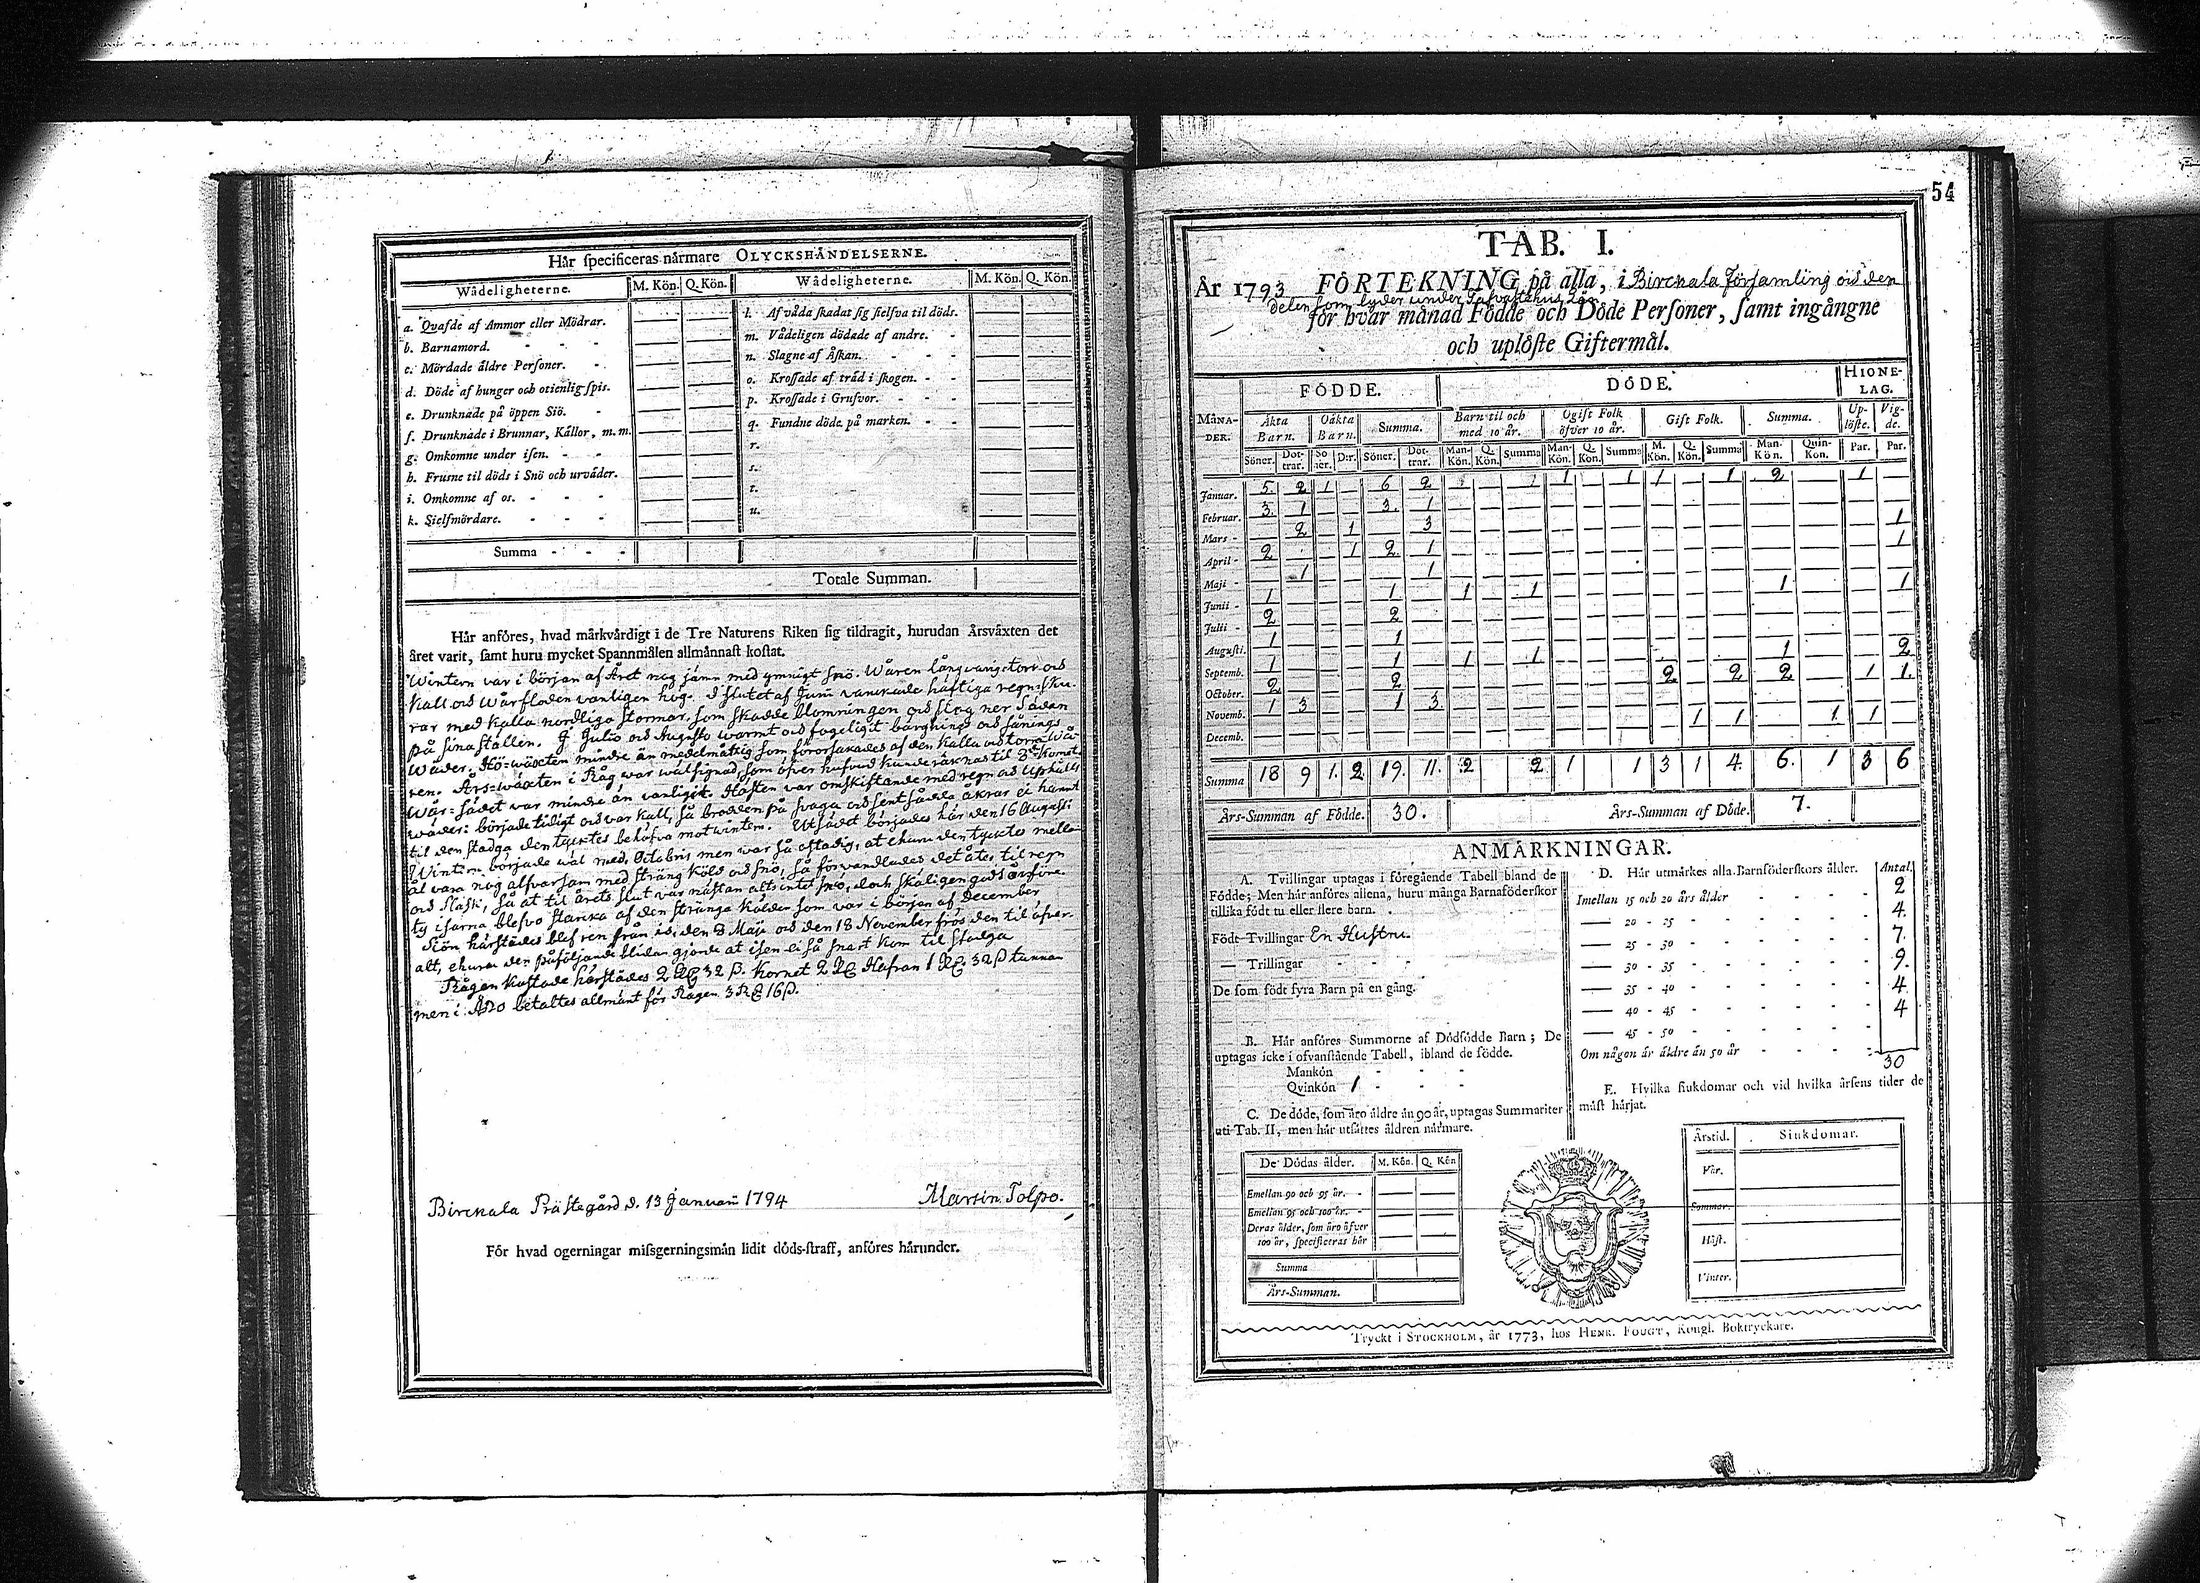 Hår specificeras nårmare OLYCKSHÅNDELSERNE.
Wådeligheterne. M. Kön. Q. Kön. Wådeligheterne. M. Kön. Q. Kön.
a. Qvafde af Ammor eller Mödrar.
b. Barnamord. - - -
c. Mördade åldre Personer. - -
d. Döde af hunger och otienlig spis.
e. Drunknade på öppen Siö. -
f. Drunknade i Brunnar, Kållor, m. m.
g. Omkomne under isen. - -
h. Frusne til döds i Snö och urvåder.
i. Omkomne af os. - - -
k. Sielfmördare. - - -
l. Af våda skadat sig sielfva til döds.
m. Vådeligen dödade af andre. -
n. Slagne af Åskan. - - -
o. Krossade af tråd i skogen. - -
p. Krossade i Grufvor. - - -
q. Fundne döde på marken. - -
r.
s.
t.
u.
Summa - - -
Totale Summan.
Hår anföres, hvad mårkvårdigt i de Tre Naturens Riken sig tildragit, hurudan Årsvåxten det
året varit, samt huru mycket Spannmålen allmånnast kostat.
Wintern var i början af Året nog jämn med ymnigt snö. Wåren långvarig torr och
kall och Wårfloden vanligen hög. I slutet af Junii vanckade häftiga regnsku-
rar med kalla nordliga stormar, som skadde blomningen och slog ner Säden
på sina ställen. I Julio och Augusto warmt och fogeligit bärgnings och sånings
Wäder. Hö-wäxten mindre än medelmåttig som förorsakades af den kalla och torra Wå-
ren. Års-wäxten i Råg war wälsignad, som öfver hufvud kunde räknas til 8:de kornet.
Wår-Sädet var mindre än vanligit. Hösten var omskiftande med regn och uphålls
wäder: började tidigt och var kall, så brodden på svaga och sent sådda åkrar ei hannt
til den stadga den tycktes behöfva mot wintern. Utsädet börjades här den 16 Augusti
Wintern började wäl med Octobris men war så ostadig, at ehuru den tycktes mellan
åt vara nog alfvarsam med sträng köld och snö, så förvandlades det åter til regn
och slask, så at til årets slut var nästan alts intet snö, doch skäligen godt årsföre.
ty isarna blefvo starcka af den stränga kölden som var i början af December
Siön härstädes blef ren från is, den 3 Maji och den 18 November frös den til öfver-
alt, ehuru den påföljande blidan giorde at isen ei så snart kom til stadga
Rågen kostade härstädes 2 Rd 32 ß. Kornet 2 Rd Hafran 1 Rd 32 ß tunnan
men i Åbo betaltes allmänt för Rågen 3 Rd 16 ß.
Birckala Prästegård d. 13 Januarii 1794 Martin Tolpo.
För hvad ogerningar missgerningsmån lidit döds-straff, anföres hårunder.
54
TAB. I.
År 1793 FÖRTEKNING på alla, i Birckala Församling och den
delen som lyder under Tafvastehus Län
för hvar månad Födde och Döde Personer, samt ingångne
och uplöste Giftermål.
MÅNA-DER. FÖDDE. DÖDE. HIONE-LAG.
Åkta Barn. Oåkta Barn. Summa. Barn til och med 10 år. Ogift Folk öfver 10 år. Gift Folk. Summa. Up-löste. Vig-de.
Söner. Döt-trar. Sö ner. D:r. Söner. Döt-trar. Man-Kön. Q. Kön. Summa Man-Kön. Q. Kön. Summ M. Kön. Q. Kön. Summa Man-Kön. Quin-Kon. Par. Par.
Januar. 5. 2 1 — 6 2 — — — 1 — 1 1 — 1 2 — 1 —
Februar. 3. 1 — — 3. 1
Mars - 2 — 1 3 1
April - 2 — 1 2 1 1
Maji - 1 1
Junii - 1 1 1 1 1 1
Julii - 2 2
Augusti. 1 1
Septemb. 1 1 1 1 1 2
October. 2 2 2 2 2 1 1.
Novemb. 1 3 1 3
Decemb. 1 1 1 1
Summa 18 9 1. 2 19. 11. 2 2 1 1 3 1 4. 6. 1 3 6
Års-Summan af Födde. 30. Års-Summan af Döde. 7.
ANMÅRKNINGAR.
A. Tvillingar uptagas i föregående Tabell bland de
Födde; Men hår anföres allena, huru många Barnaföderskor
tillika födt tu eller flere barn.
Födt Tvillingar En Hustru.
— Trillingar - - -
De som födt fyra Barn på en gång.
B. Hår anföres Summorne af Dödfödde Barn; De
uptagas icke i ofvanstående Tabell, ibland de födde.
Mankön - - -
Qvinkön 1 - - -
C. De döde, som åro åldre ån 90 år, uptagas Summariter
uti Tab. II, men hår utsåttes åldren nårmare.
De Dödas ålder. M. Kön. Q. Kön
Emellan 90 och 95 år. -
Emellan 95 och 100 år. -
Deras ålder, som åro åfver
100 år, specificeras hår
Summa
Års-Summan.
D. Hår utmårkes alla Barnföderskors ålder. Antal.
Imellan 15 och 20 års ålder - - - 2
— 20 - 25 - - - 4.
— 25 - 30 - - - 7.
— 30 - 35 - - - 9.
— 35 - 40 - - - 4.
— 40 - 45 - - - 4
— 45 - 50 - - -
Om någon år åldre ån 50 år - - - -
30
E. Hvilka siukdomar och vid hvilka årsens tider de
måst hårjat.
Årstid. Siukdomar.
Vår.
Sommar.
Höst.
Vinter.
Tryckt i STOCKHOLM, år 1773, hos HENR. FOUGT, Kongl. Boktryckare.